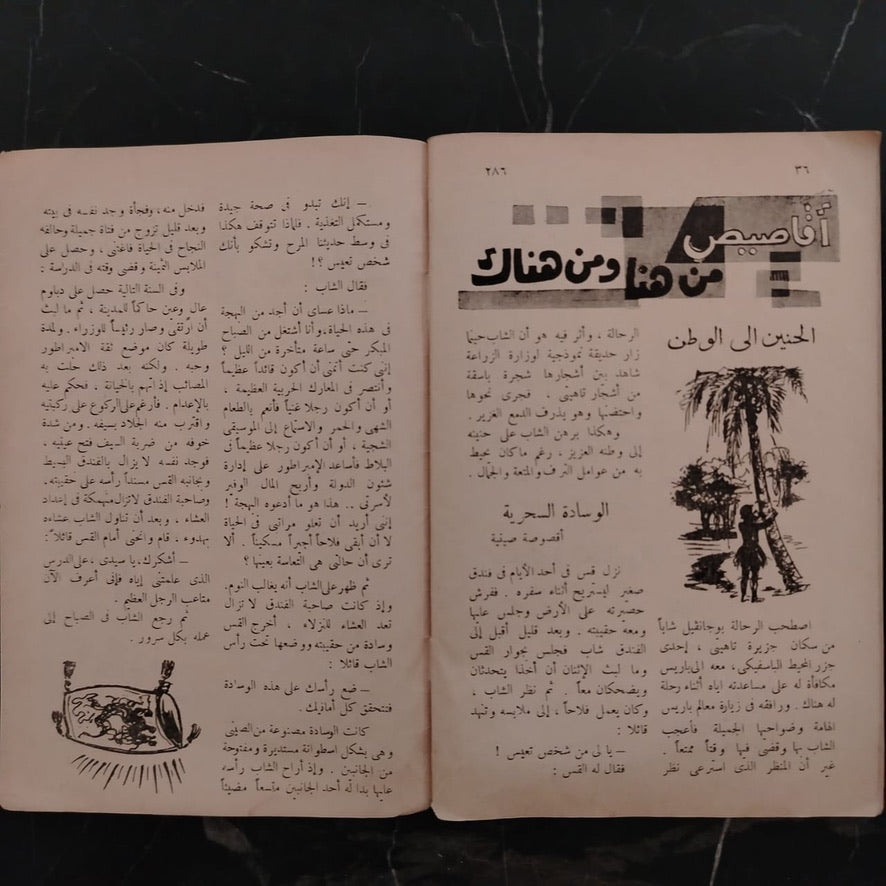 ٣٦
٢٨٦
أقاصيص
من هنا ومن هناك
الحنين الى الوطن
اصطحب الرحالة بوجانڤيل شاباً
من سكان جزيرة تاهيتى ، إحدى
جزر المحيط الباسفيكى ، معه إلى باريس
مكافأة له على مساعدته اياه أثناء رحلة
له هناك . ورافقه فى زيارة معالم باريس
الهامة وضواحيها الجميلة فأعجب
الشاب بها وقضى فيها وقتاً ممتعاً .
غير أن المنظر الذى استرعى نظر
الرحالة ، وأثر فيه هو أن الشاب حينما
زار حديقة نموذجية لوزارة الزراعة
شاهد بين أشجارها شجرة باسقة
من أشجار تاهيتى ، فجرى نحوها
واحتضنها وهو يذرف الدمع الغزير .
وهكذا برهن الشاب على حنينه
إلى وطنه العزيز ، رغم ما كان يحيط
به من عوامل الترف والمتعة والجمال .
الوسادة السحرية
أقصوصة صينية
نزل قس فى أحد الأيام فى فندق
صغير ليستريح أثناء سفره . ففرش
حصيرته على الأرض وجلس عليها
ومعه حقيبته . وبعد قليل أقبل إلى
الفندق شاب فجلس بجوار القس
وما لبث الإثنان أن أخذا يتحدثان
ويضحكان معاً . ثم نظر الشاب ،
وكان يعمل فلاحاً ، إلى ملابسه وتنهد
قائلا :
— يا لى من شخص تعيس !
فقال له القس :
— إنك تبدو فى صحة جيدة
ومستكمل التغذية . فلماذا تتوقف هكذا
فى وسط حديثنا المرح وتشكو بأنك
شخص تعيس ؟ !
فقال الشاب :
— ماذا عساى أن أجد من البهجة
فى هذه الحياة ، وأنا أشتغل من الصباح
المبكر حتى ساعة متأخرة من الليل ؟
إننى كنت أتمنى أن أكون قائداً عظيماً
وأنتصر فى المعارك الحربية العظيمة ،
أو أن أكون رجلا غنياً فأنعم بالطعام
الشهى والخمر والاستماع إلى الموسيقى
الشجية ، أو أن أكون رجلا عظيماً فى
البلاط فأساعد الإمبراطور على إدارة
شئون الدولة وأربح المال الوفير
لأسرتى .. هذا هو ما أدعوه البهجة !
إننى أريد أن تعلو مراتبى فى الحياة
لا أن أبقى فلاحاً أجيراً مسكيناً . ألا
ترى أن حالتى هى التعاسة بعينها ؟
ثم ظهر على الشاب أنه يغالب النوم .
وإذ كانت صاحبة الفندق لا تزال
تعد العشاء للنزلاء ، أخرج القس
وسادة من حقيبته ووضعها تحت رأس
الشاب قائلا :
— ضع رأسك على هذه الوسادة
فتتحقق كل أمانيك .
كانت الوسادة مصنوعة من الصينى
وهى بشكل اسطوانة مستديرة ومفتوحة
من الجانبين . وإذ أراح الشاب رأسه
عليها بدا له أحد الجانبين متسعاً مضيئاً
فدخل منه ، وفجأة وجد نفسه فى بيته
وبعد قليل تزوج من فتاة جميلة وحالفه
النجاح فى الحياة فاغتنى ، وحصل على
الملابس الثمينة وقضى وقته فى الدراسة :
وفى السنة التالية حصل على دبلوم
عال وعين حاكماً للمدينة ، ثم ما لبث
أن ارتقى وصار رئيساً للوزراء . ولمدة
طويلة كان موضع ثقة الامبراطور
وحبه . ولكنه بعد ذلك حلت به
المصائب إذ اتهم بالخيانة ، فحكم عليه
بالإعدام . فأرغم على الركوع على ركبتيه
واقترب منه الجلاد بسيفه . ومن شدة
خوفه من ضربة السيف فتح عينيه ،
فوجد نفسه لا يزال بالفندق البسيط
وبجانبه القس مسنداً رأسه على حقيبته .
وصاحبة الفندق لا تزال منهمكة فى إعداد
العشاء . وبعد أن تناول الشاب عشاءه
بهدوء ، قام وانحنى أمام القس قائلا :
— أشكرك ، يا سيدى ، على الدرس
الذى علمتنى إياه فإنى أعرف الآن
متاعب الرجل العظيم .
ثم رجع الشاب فى الصباح إلى
عمله بكل سرور .